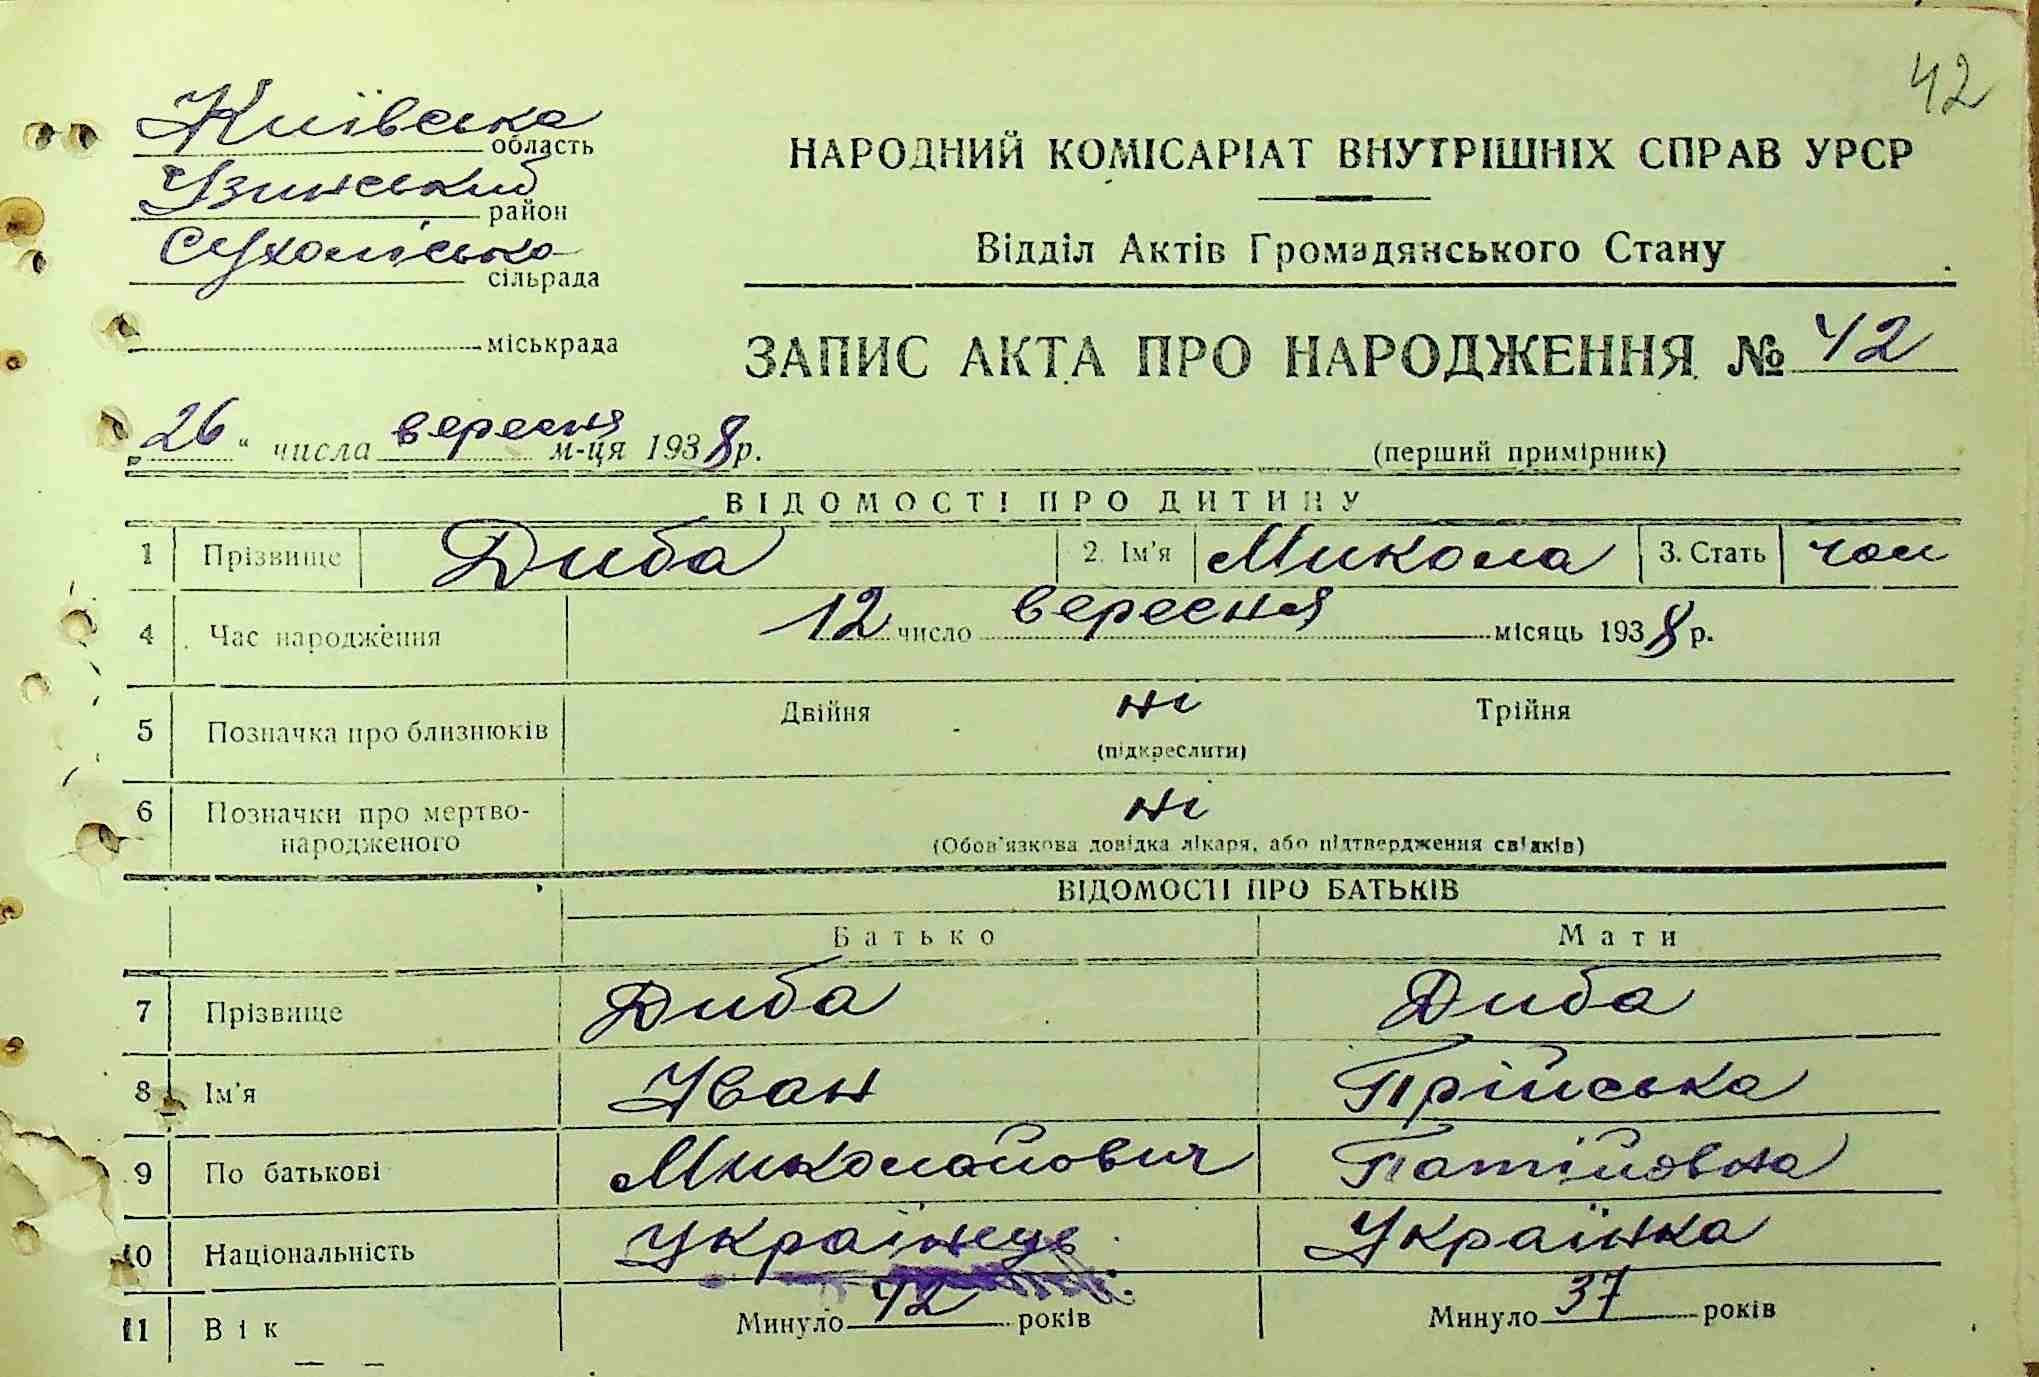 42
Київська область
Узинський район
Сухоліська сільрада
міськрада
НАРОДНИЙ КОМІСАРІАТ ВНУТРІШНІХ СПРАВ УРСР
Відділ Актів Громадянського Стану
ЗАПИС АКТА ПРО НАРОДЖЕННЯ № 42
„26“ числа вересня м-ця 1938 р.
(перший примірник)
ВІДОМОСТІ ПРО ДИТИНУ
1 Прізвище Диба 2. Ім'я Микола 3. Стать чол
4 Час народження 12 число вересня місяць 1938 р.
5 Позначка про близнюків Двійня ні Трійня
(підкреслити)
6 Позначки про мертво-
народженого ні
(Обов'язкова довідка лікаря, або підтвердження свідків)
ВІДОМОСТІ ПРО БАТЬКІВ
Батько Мати
7 Прізвище Диба Диба
8 Ім'я Іван Прійська
9 По батькові Миколайович
10 Національність Українець Українка
11 Вік Минуло 42 років Минуло 37 років